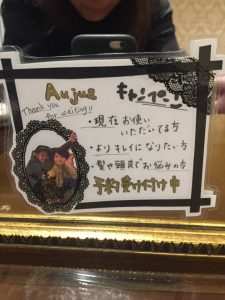 Aujua キャンペーン
Thank you
for waiting!!
・現在お使い
いただいてる方
・よりキレイになりたい方
・髪や頭皮でお悩みの方
予約受け付け中